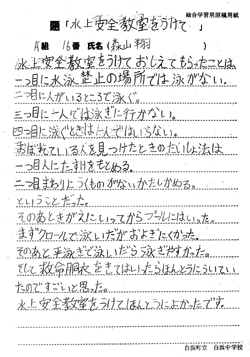 総合学習用原稿用紙
題「水上安全教室をうけて」
A組 16番 氏名(森山 翔)
水上安全教室をうけておしえてもらったことは
一つ目に水泳禁止の場所では泳がない。
二つ目に人がいるところで泳ぐ。
三つ目に一人では泳ぎに行かない。
四つ目に泳ぐときは一人ではいらない。
おぼれている人を見つけたときのたいしょ法は
一つ目人にたすけをもとめる。
二つ目まわりにうくものがないかたしかめる。
ということだった。
そのあときがえにいってからプールにはいった。
まずクロールで泳いだがおよぎにくかった。
そのあと平泳ぎで泳いだら泳ぎやすかった。
そして救命胴衣をきてはいったらほんとうにういてい
たのですごいと思った。
水上安全教室をうけてほんとうによかったです。
白浜町立 白浜中学校